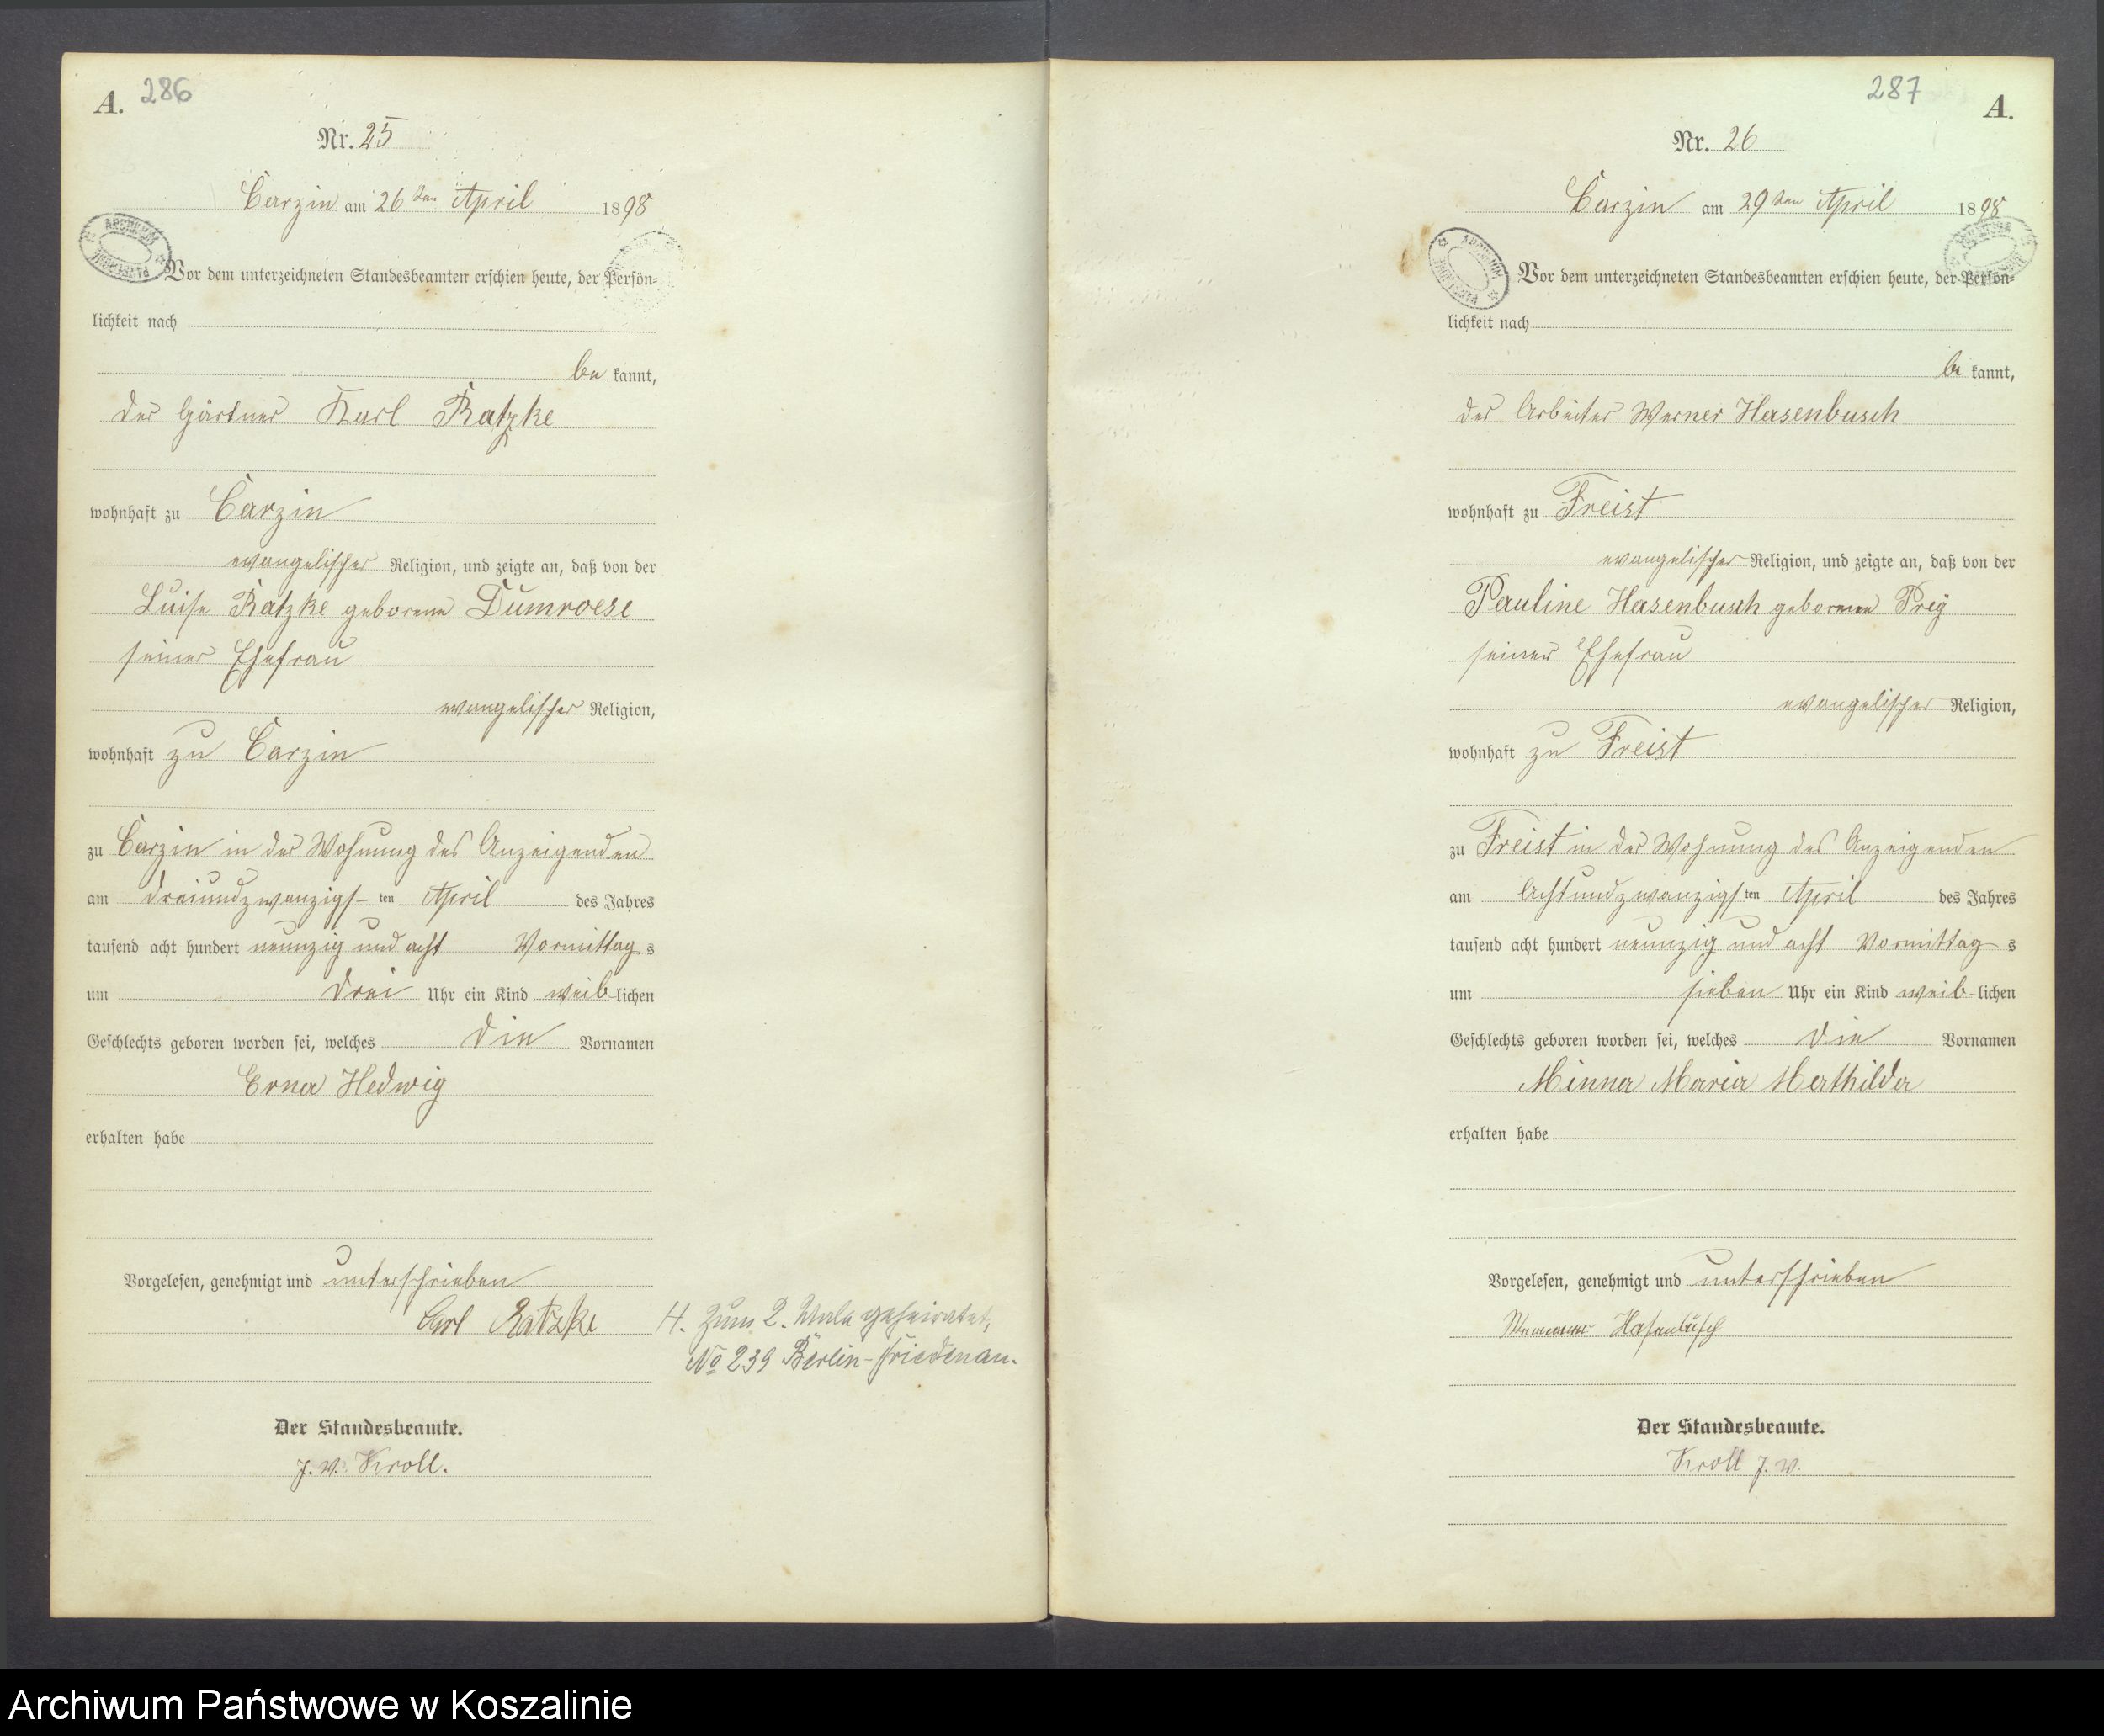 A. 286
Nr. 25
Carzin am 26ten April 1898
Vor dem unterzeichneten Standesbeamten erschien heute, der Persön-
lichkeit nach
be kannt,
der Gärtner Karl Ratzke
wohnhaft zu Carzin
evangelischer Religion, und zeigte an, daß von der
Luise Ratzke geborene Dumroese
seiner Ehefrau
evangelischer Religion,
wohnhaft zu Carzin
zu Carzin in der Wohnung des Anzeigenden
am dreiundzwanzigs-ten April des Jahres
tausend acht hundert neunzig und acht Vormittag s
um drei Uhr ein Kind weib-lichen
Geschlechts geboren worden sei, welches die Vornamen
Erna Hedwig
erhalten habe
Vorgelesen, genehmigt und unterschrieben
Carl Ratzke
H. Zum 2. Male geheiratet,
No 239 Berlin-Friedenau.
Der Standesbeamte.
J. V. Kroll.
287 A.
Nr. 26
Carzin am 29ten April 1898
Vor dem unterzeichneten Standesbeamten erschien heute, der Persön-
lichkeit nach
be kannt,
der Arbeiter Werner Hasenbusch
wohnhaft zu Freist
evangelischer Religion, und zeigte an, daß von der
Pauline Hasenbusch geborene Prey
seiner Ehefrau
evangelischer Religion,
wohnhaft zu Freist
zu Freist in der Wohnung des Anzeigenden
am Achtundzwanzigsten April des Jahres
tausend acht hundert neunzig und acht Vormittag s
um sieben Uhr ein Kind weib-lichen
Geschlechts geboren worden sei, welches die Vornamen
Minna Maria Mathilda
erhalten habe
Vorgelesen, genehmigt und unterschrieben
Hasenbusch
Der Standesbeamte.
Kroll J. V.
Archiwum Państwowe w Koszalinie